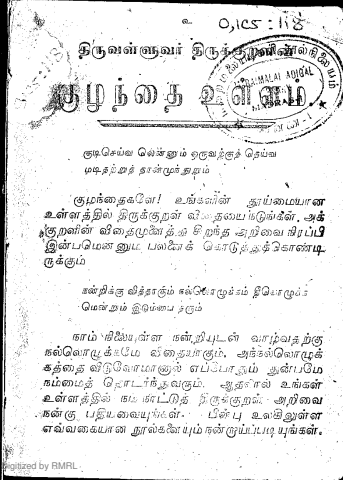 உ
0,1CS:118
திருவள்ளுவர் திருக்குறளின்
குழந்தை உள்ளம்
குடிசெய்வ லென்னும் ஒருவற்குத் தெய்வ
மடிதற்றுத் தான்முந்துறும்
குழந்தைகளே! உங்களின் தூய்மையான
உள்ளத்தில் திருக்குறள் விதையை நடுங்கள். அக்
குறளின் விதைமுளைத்து சிறந்த அறிவை நிரப்பி
இன்பமென்னும் பலனைக் கொடுத்துக்கொண்டி
ருக்கும்
நன்றிக்கு வித்தாகும் நல்லொழுக்கம் தீயொழுக்க
மென்றும் இடும்பை தரும்
நாம் நிலையுள்ள நன்றியுடன் வாழ்வதற்கு
நல்லொழுக்கமே விதையாகும். அக்நல்லொழுக்
கத்தை விடுவோமானால் எப்போதும் துன்பமே
நம்மைத் தொடர்ந்துவரும். ஆதலால் உங்கள்
உள்ளத்தில் நம் நாட்டுத் திருக்குறள் அறிவை
நன்கு பதியவையுங்கள். பின்பு உலகிலுள்ள
எவ்வகையான நூல்களையும் நன்றாய்ப்படியுங்கள்.
Digitized by RMRL